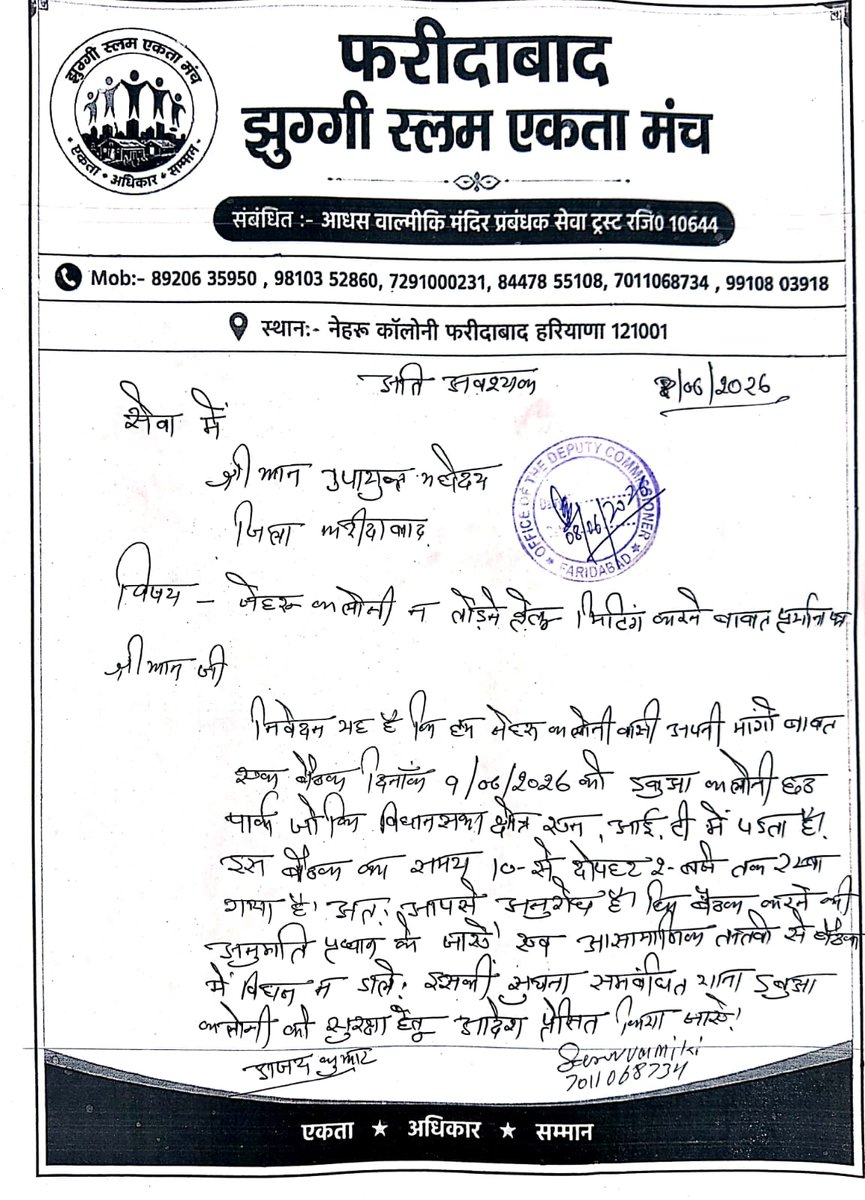 झुग्गी स्लम एकता मंच
एकता • अधिकार • सम्मान
फरीदाबाद
झुग्गी स्लम एकता मंच
संबंधित :- आधस वाल्मीकि मंदिर प्रबंधक सेवा ट्रस्ट रजि0 10644
Mob:- 89206 35950 , 98103 52860, 7291000231, 84478 55108, 7011068734 , 99108 03918
स्थान:- नेहरू कॉलोनी फरीदाबाद हरियाणा 121001
अति अवश्यक
/06/2026
सेवा में
श्रीमान उपायुक्त महोदय
जिला फरीदाबाद
OFFICE OF THE DEPUTY COMMISSIONER
08/06/2026
★ FARIDABAD ★
विषय – नेहरू कलोनी न तोड़ने हेतु मिटिंग करने बाबत
श्रीमान जी
निवेदन यह है कि हम नेहरू कलोनी वासी अपनी मांगो बाबत
एक बैठक दिनाँक 9/06/2026 को डबुआ कलोनी
पार्क जो कि विधानसभा क्षेत्र एन. आई. टी में पडता है।
इस बैठक का समय 10- से दोपहर 2- बजे तक रखा
गया है। अत: आपसे अनुरोध है। कि बैठक करने की
अनुमति के जाऐं एव बैठक
में विघन न डाले। इसकी सुचना समबंधित थाना डबुआ
कलोनी को सुरक्षा हेतू आदेश प्रेसित किया जाऐं।
अजय कुमार
7011068734
एकता ★ अधिकार ★ सम्मान